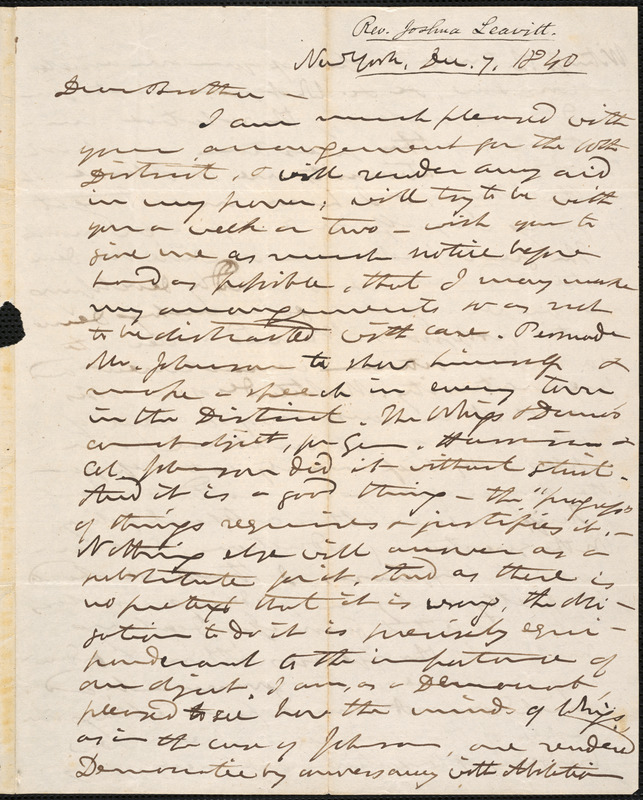 Rev. Joshua Leavitt.
New York, Dec. 7, 1840
Dear Brother —
I am much pleased with
your arrangement for the 10th
District, & will render any aid
in my power; will try to be with
you a week or two — wish you to
give me as much notice before
hand as possible, that I may make
my arrangements so as not
to be distracted with care. Persuade
Mr. Johnson to show himself &
make a speech in every town
in the District. The Whigs & Demo's
cannot object, for Gen. Harrison &
Col. Johnson did it without stint.
And it is a good thing — the "progress"
of things requires & justifies it. —
Nothing else will answer as a
substitute for it. And as there is
no pretext that it is wrong, the obli-
gation to do it is precisely equi-
ponderant to the importance of
our object. I am, as a Democrat,
pleased to see how the minds of Whigs,
as in the case of Johnson, are rendered
Democratic by conversancy with Abolition